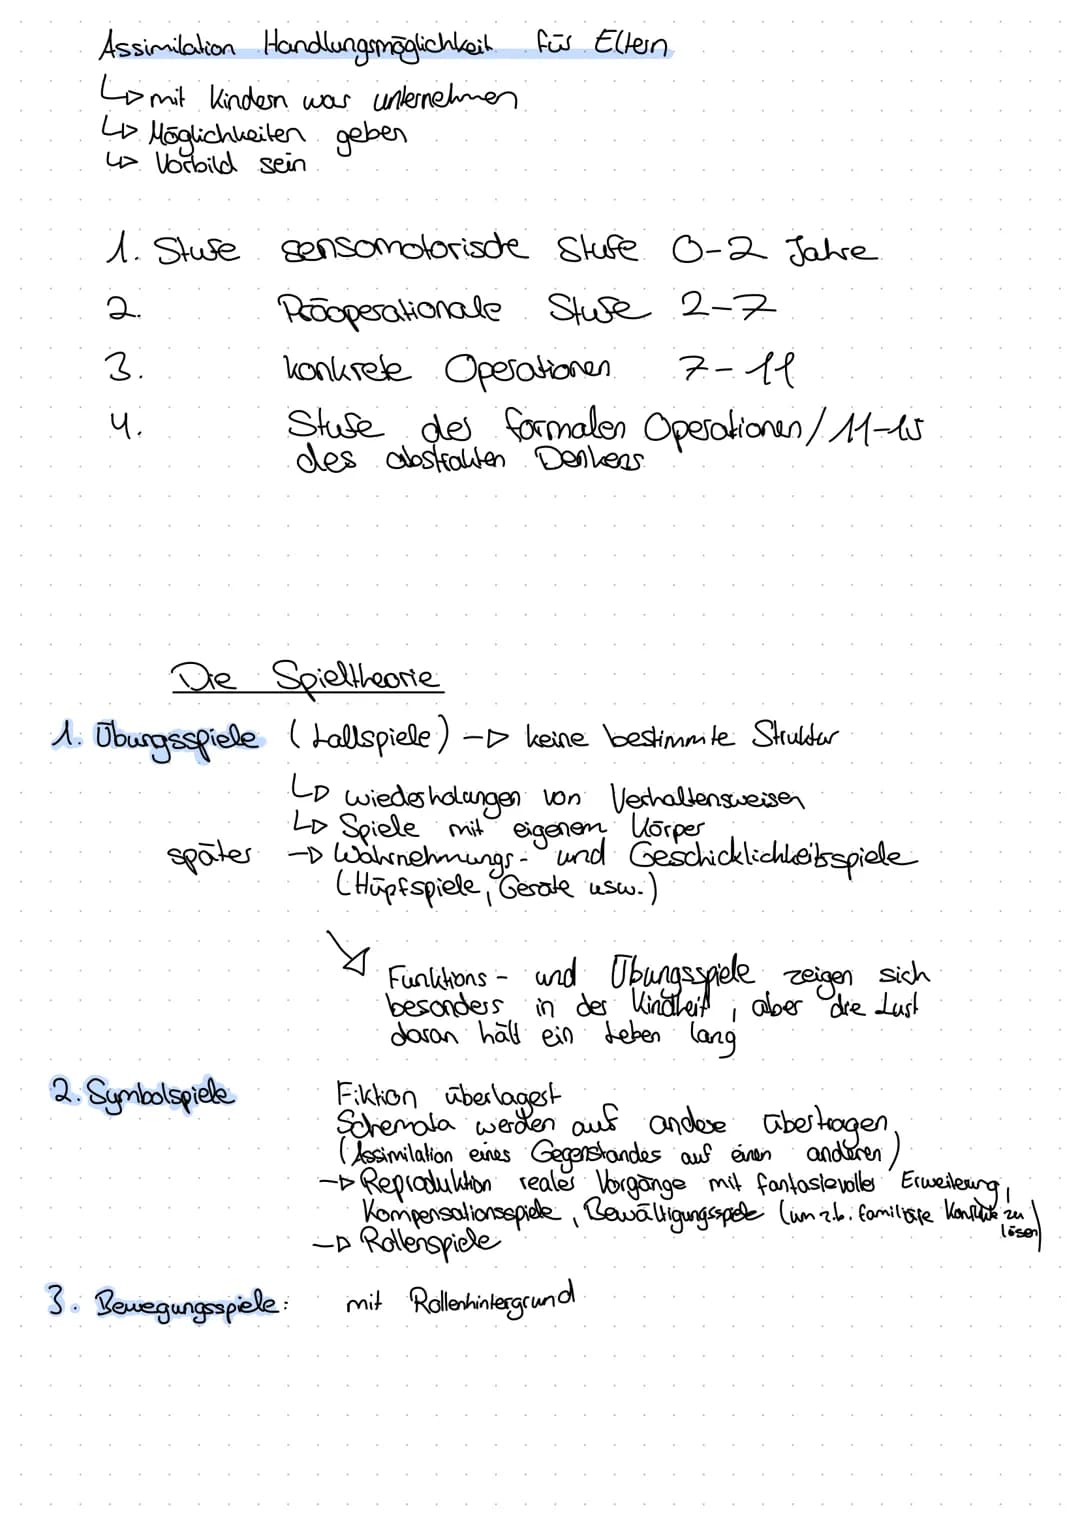 Assimilation Handlungsmöglichkeit für Eltern
↳ mit Kindern was unternehmen
↳ Möglichkeiten geben
↳ Vorbild sein
1. Stufe sensomotorische Stufe 0-2 Jahre
2. Präoperationale Stufe 2-7
3. konkrete Operationen 7-11
4. Stufe des formalen Operationen / 11-15
des abstrakten Denkens
Die Spieltheorie
1. Übungsspiele (Lallspiele) → keine bestimmte Struktur
↳ wiederholungen von Verhaltensweisen
↳ Spiele mit eigenem Körper
später → Wahrnehmungs- und Geschicklichkeitsspiele
(Hüpfspiele, Geräte usw.)
↘ Funktions- und Übungsspiele zeigen sich
besonders in der Kindheit, aber die Lust
daran hält ein Leben lang
2. Symbolspiele Fiktion überlagert
Schemata werden auf andere übertragen,
(Assimilation eines Gegenstandes auf einen anderen)
→ Reproduktion realer Vorgänge mit fantasievoller Erweiterung,
Kompensationsspiele, Bewältigungsspiele (um z.b. familiäre Konflikte zu
lösen)
→ Rollenspiele
3. Bewegungsspiele: mit Rollenhintergrund